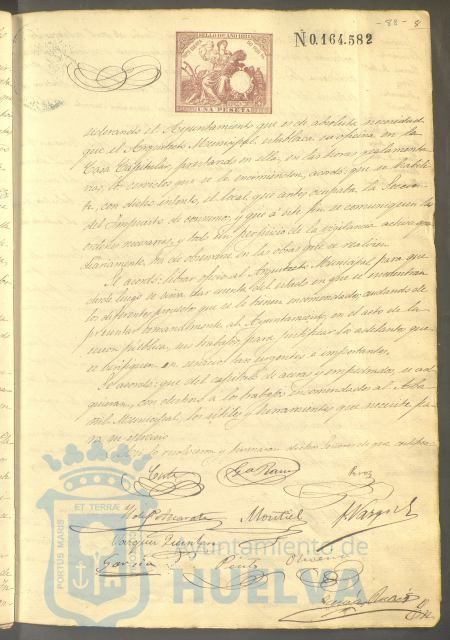 - 88 - 8
SELLO DE AÑO 1881
N 0.164.582
UNA PESETA
siderando el Ayuntamiento que es de absoluta necesidad
que el Arquitecto Municipal, establezca su oficina en la
Casa Capitular, prestando en ella, en las horas reglamenta
rias, los servicios que se le encomienden, acordó: que se habili
te, con dicho intento, el local que antes ocupaba la Recauda
del Impuesto de consumos, y que á este fin se comuniquen las
ordenes necesarias, y todo sin perjuicio de la vigilancia activa que
diariamente, ha de observar en las obras que se realicen.
Se acordó: librar oficio al Arquitecto Municipal para que
desde luego se sirva dar cuenta del estado en que se encuentran
los diferentes proyectos que se le tienen encomendados, cuidando de
presentar semanalmente al Ayuntamiento, en el acto de la
sesion pública, sus trabajos para justificar los adelantos que
se verifiquen en servicios tan urgentes é importantes.
Se acordó: que del capítulo de aceras y empedrados, se ad
quieran, con destino á los trabajos encomendados al Alba
ñil Municipal, los útiles y herramientas que necesite pa
ra su
Así lo resolvieron y firmaron dichos Señores de que certifico
Montiel
J. Vazquez
Vazquez
Garcia
ET TERRÆ
PORTUS MARIS
Ayuntamiento de
HUELVA